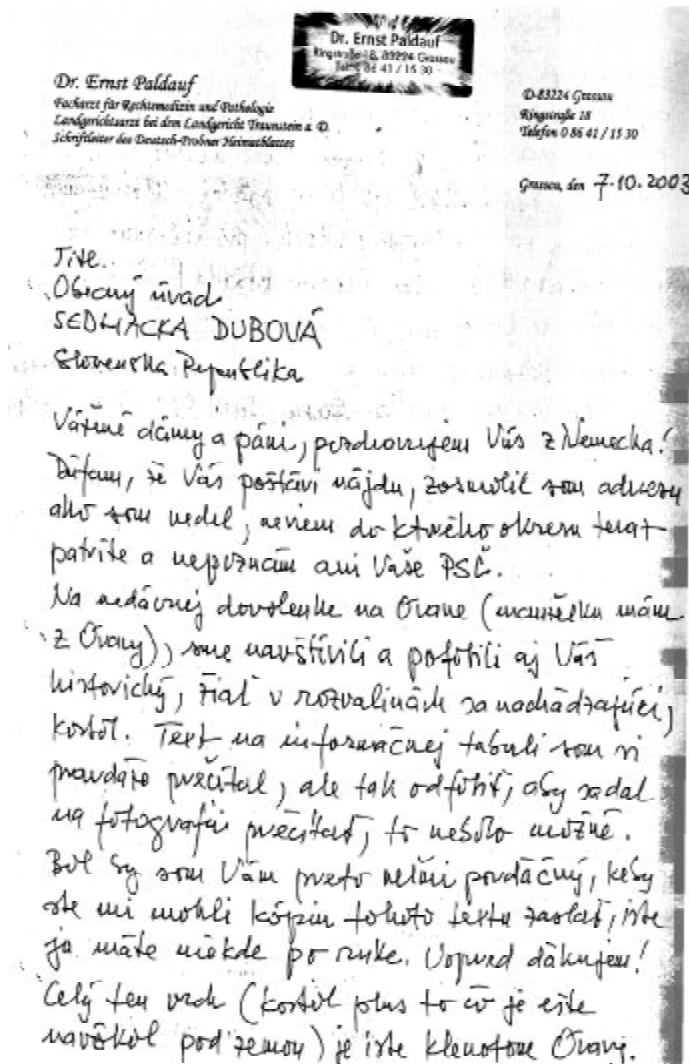 Dr. Ernst Paldauf
Ringstraße 18, 83224 Grassau
Tel. 0 86 41 / 15 30
Dr. Ernst Paldauf
Facharzt für Rechtsmedizin und Pathologie
Landgerichtsarzt bei dem Landgericht Traunstein a. D.
Schriftleiter des Deutsch-Probner Heimatblattes
D-83224 Grassau
Ringstraße 18
Telefon 0 86 41 / 15 30
Grassau, den 7.10.2003
Obecný úrad
SEDLIACKA DUBOVÁ
Slovenska Republika
Vážené dámy a páni, pozdravujem Vás z Nemecka!
Dúfam, že Vás poštári nájdu, zosmolil som adresu
ako som vedel, neviem do ktorého okresu teraz
patríte a nepoznám ani Vaše PSČ.
Na nedávnej dovolenke na Orave (manželku mám
z Oravy), sme navštívili a pofotili aj Váš
historický, žiaľ v rozvalinách sa nachádzajúci,
kostol. Text na informačnej tabuli som si
pravdaže prečítal, ale tak odfotiť, aby sa dal
na fotografii prečítať, to nešlo možné.
Bol by som Vám preto veľmi povďačný, keby
ste mi mohli kópiu tohoto textu zaslať, iste
ja máte niekde po ruke. Vopred ďakujem!
Celý ten vrch (kostol plus to čo je ešte
navôkol pod zemou) je iste klenotom Oravy.